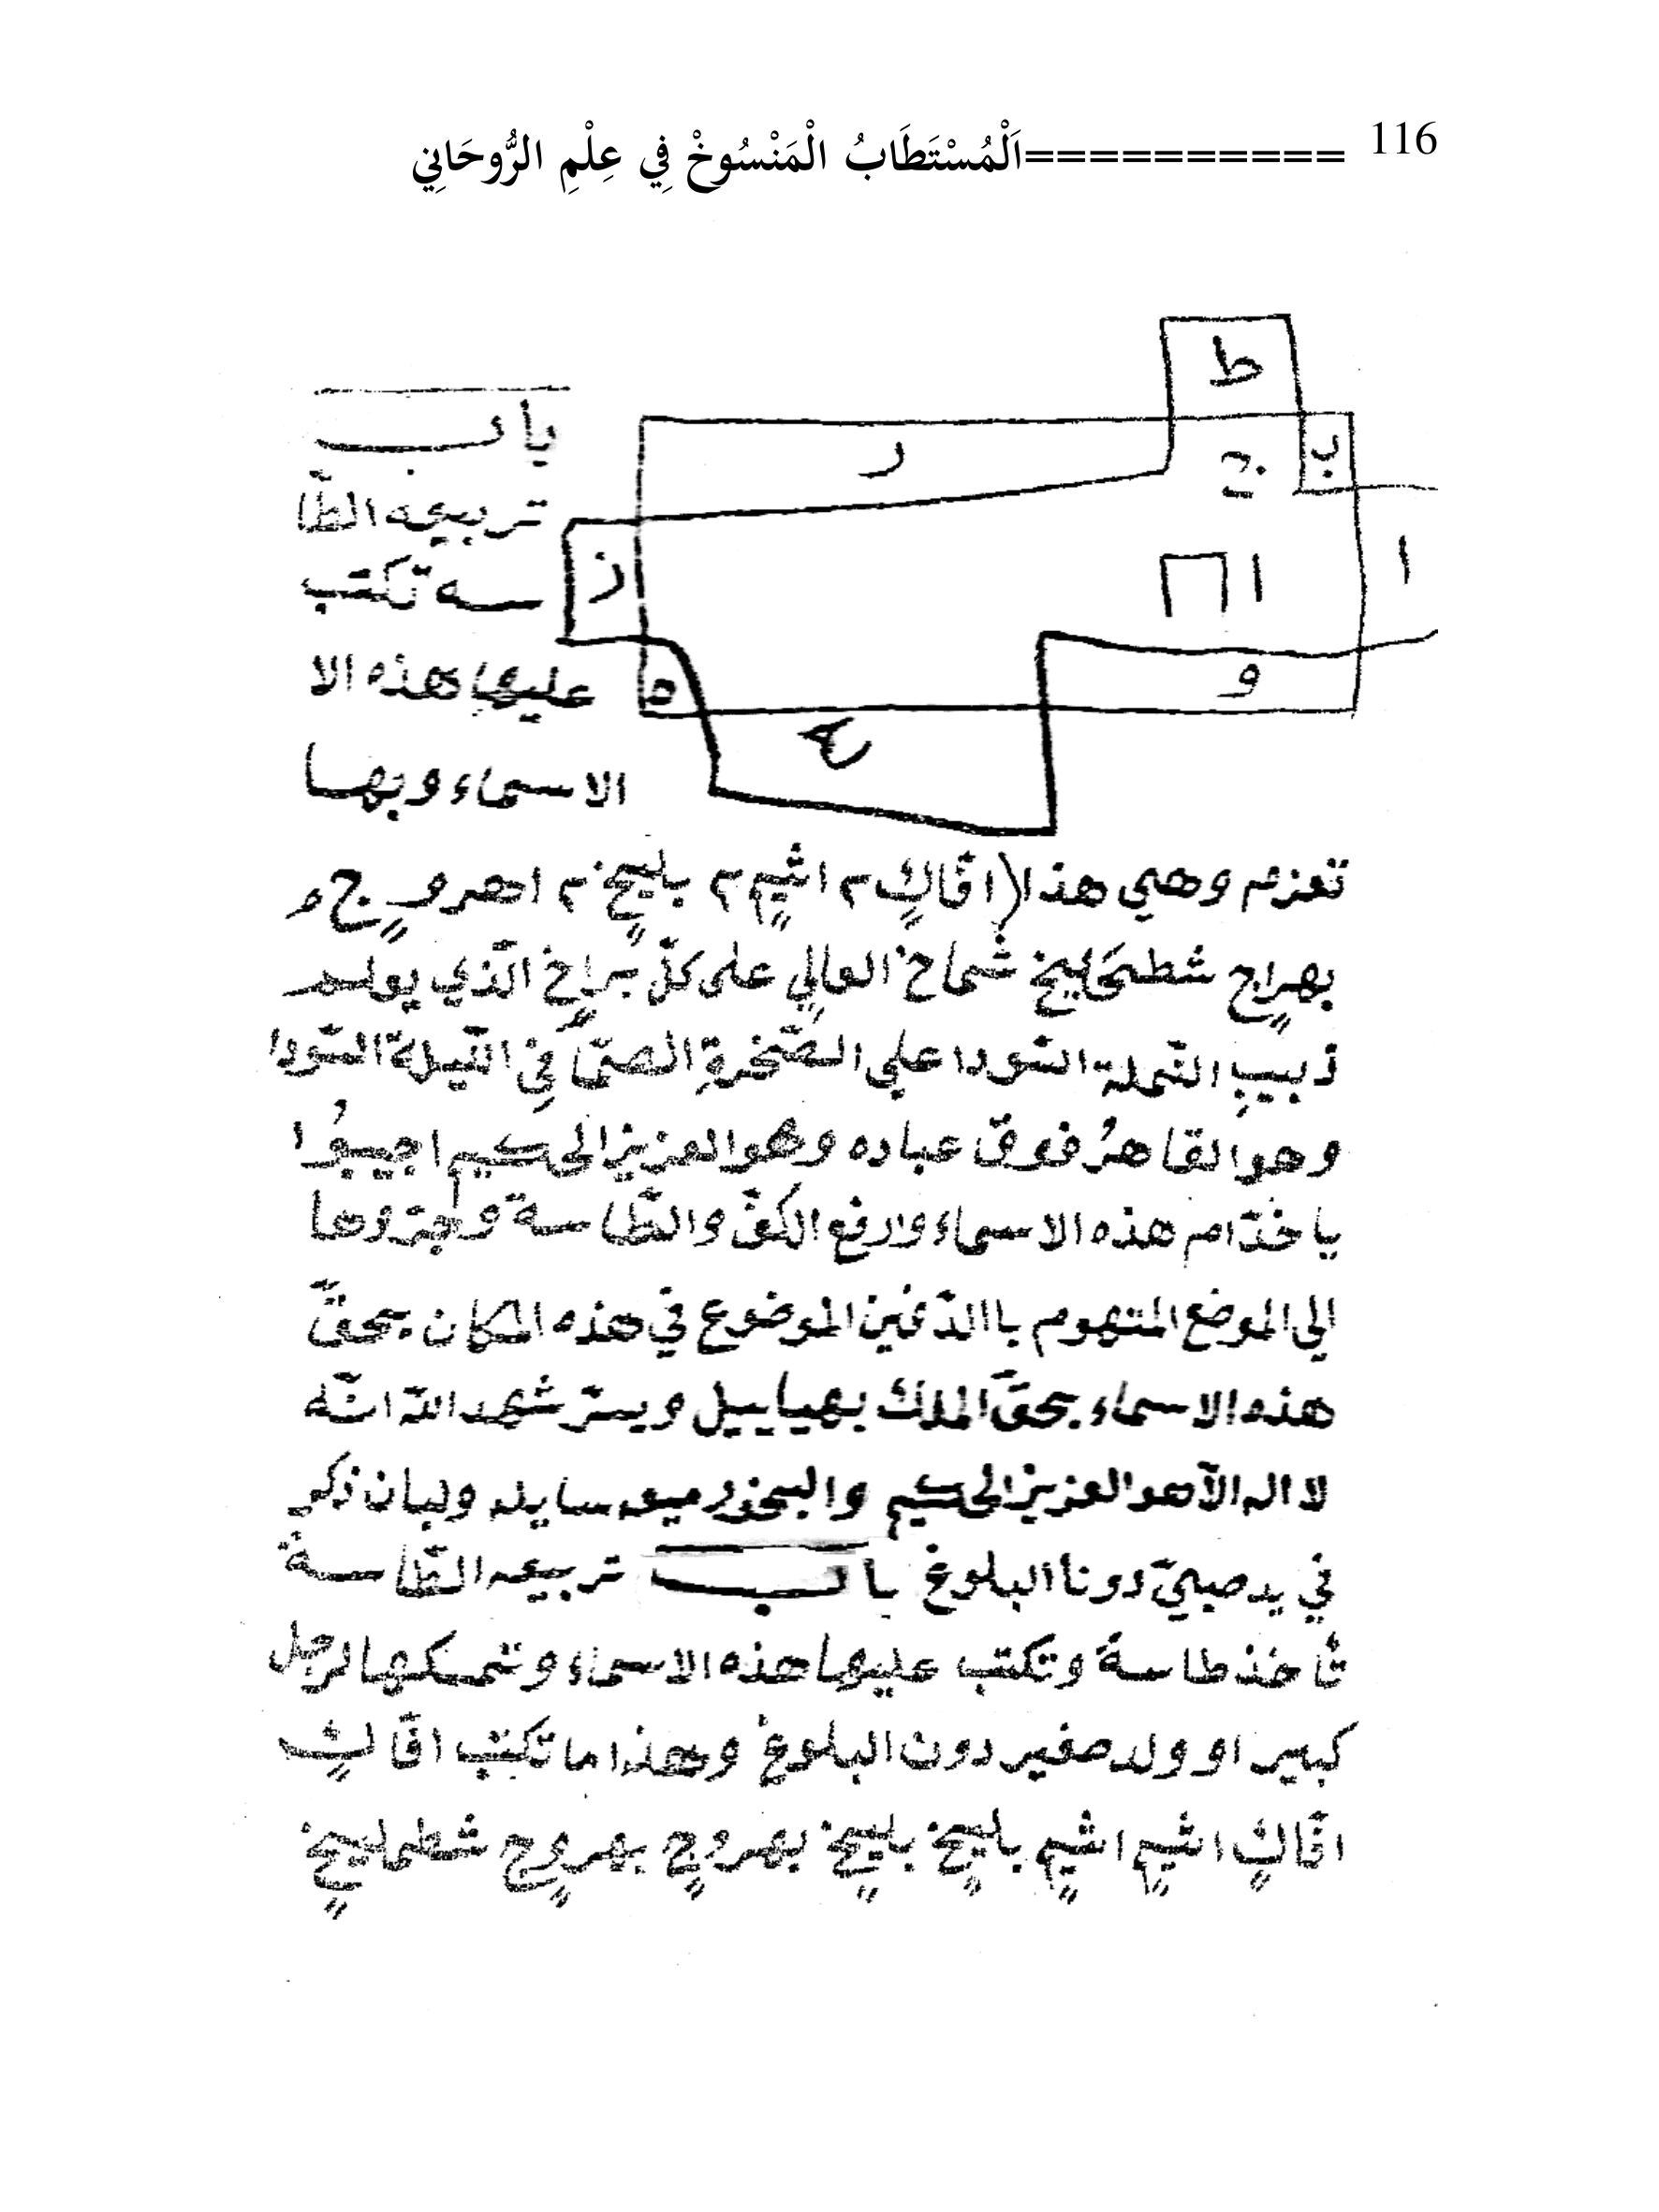 116 ==========اَلْمُسْتَطَابُ الْمَنْسُوخْ فِي عِلْمِ الرُّوحَانِي
ط
ب ج ر
ا ا ز
و ه
ع
باب
تربيعه الطا
سه تكتب
عليها هذه الا
الاسماء وبها
تعزم وهي هذا (اقاكٍ ٢ اثيمٍ ٢ بليخٍ ٢
بهراج شماخ العالي على كلّ براخ الّذي
دبيبِ النّملة السّودا علي الصّخرةِ الصمّا فِي اللّيلة السّودا
وهو القاهرُ فوق عباده وهو العزيز الحكيم اجيبُوا
يا خدّام هذه الاسماء وارفع الكفّ والطّاسة وجرّوها
الي الموضع المتهوم باالدّفين الموضوع في هذه المكان بحقّ
هذه الاسماء بحقّ الملك بهياييل شهد اللّه انّه
لا اله الاّ هو العزيز الحكيم والبخور ميعه سايله ولبان ذكر
في يد صبيّ دونا البلوغ باب تربيعه الطّاسة
تأخذ طاسة وتكتب عليها هذه الاسماء وتمسكها لرجل
كبير او ولد صغير دون البلوغ وهذا ما تكتب اقاكٍ
اقاكٍ اثيمٍ اثيمٍ بليخٍ بليخٍ بهروجٍ بهروجٍ